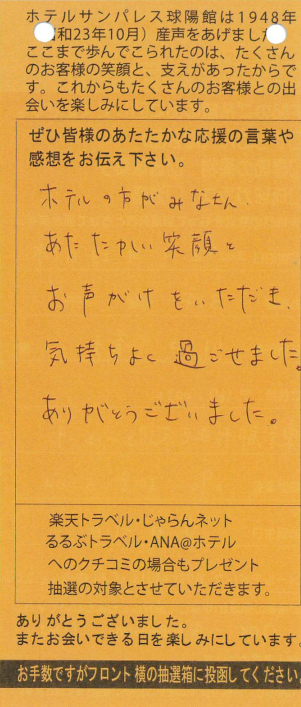 ホテルサンパレス球陽館は1948年
和23年10月）産声をあげました
ここまで歩んでこられたのは、たくさん
のお客様の笑顔と、支えがあったからで
す。これからもたくさんのお客様との出
会いを楽しみにしています。
ぜひ皆様のあたたかな応援の言葉や
感想をお伝え下さい。
ホテルの方がみなさん
あたたかい笑顔と
お声がけをいただき、
気持ちよく過ごせました。
ありがとうございました。
楽天トラベル・じゃらんネット
るるぶトラベル・ANA@ホテル
へのクチコミの場合もプレゼント
抽選の対象とさせていただきます。
ありがとうございました。
またお会いできる日を楽しみにしています。
お手数ですがフロント横の抽選箱に投函してください。